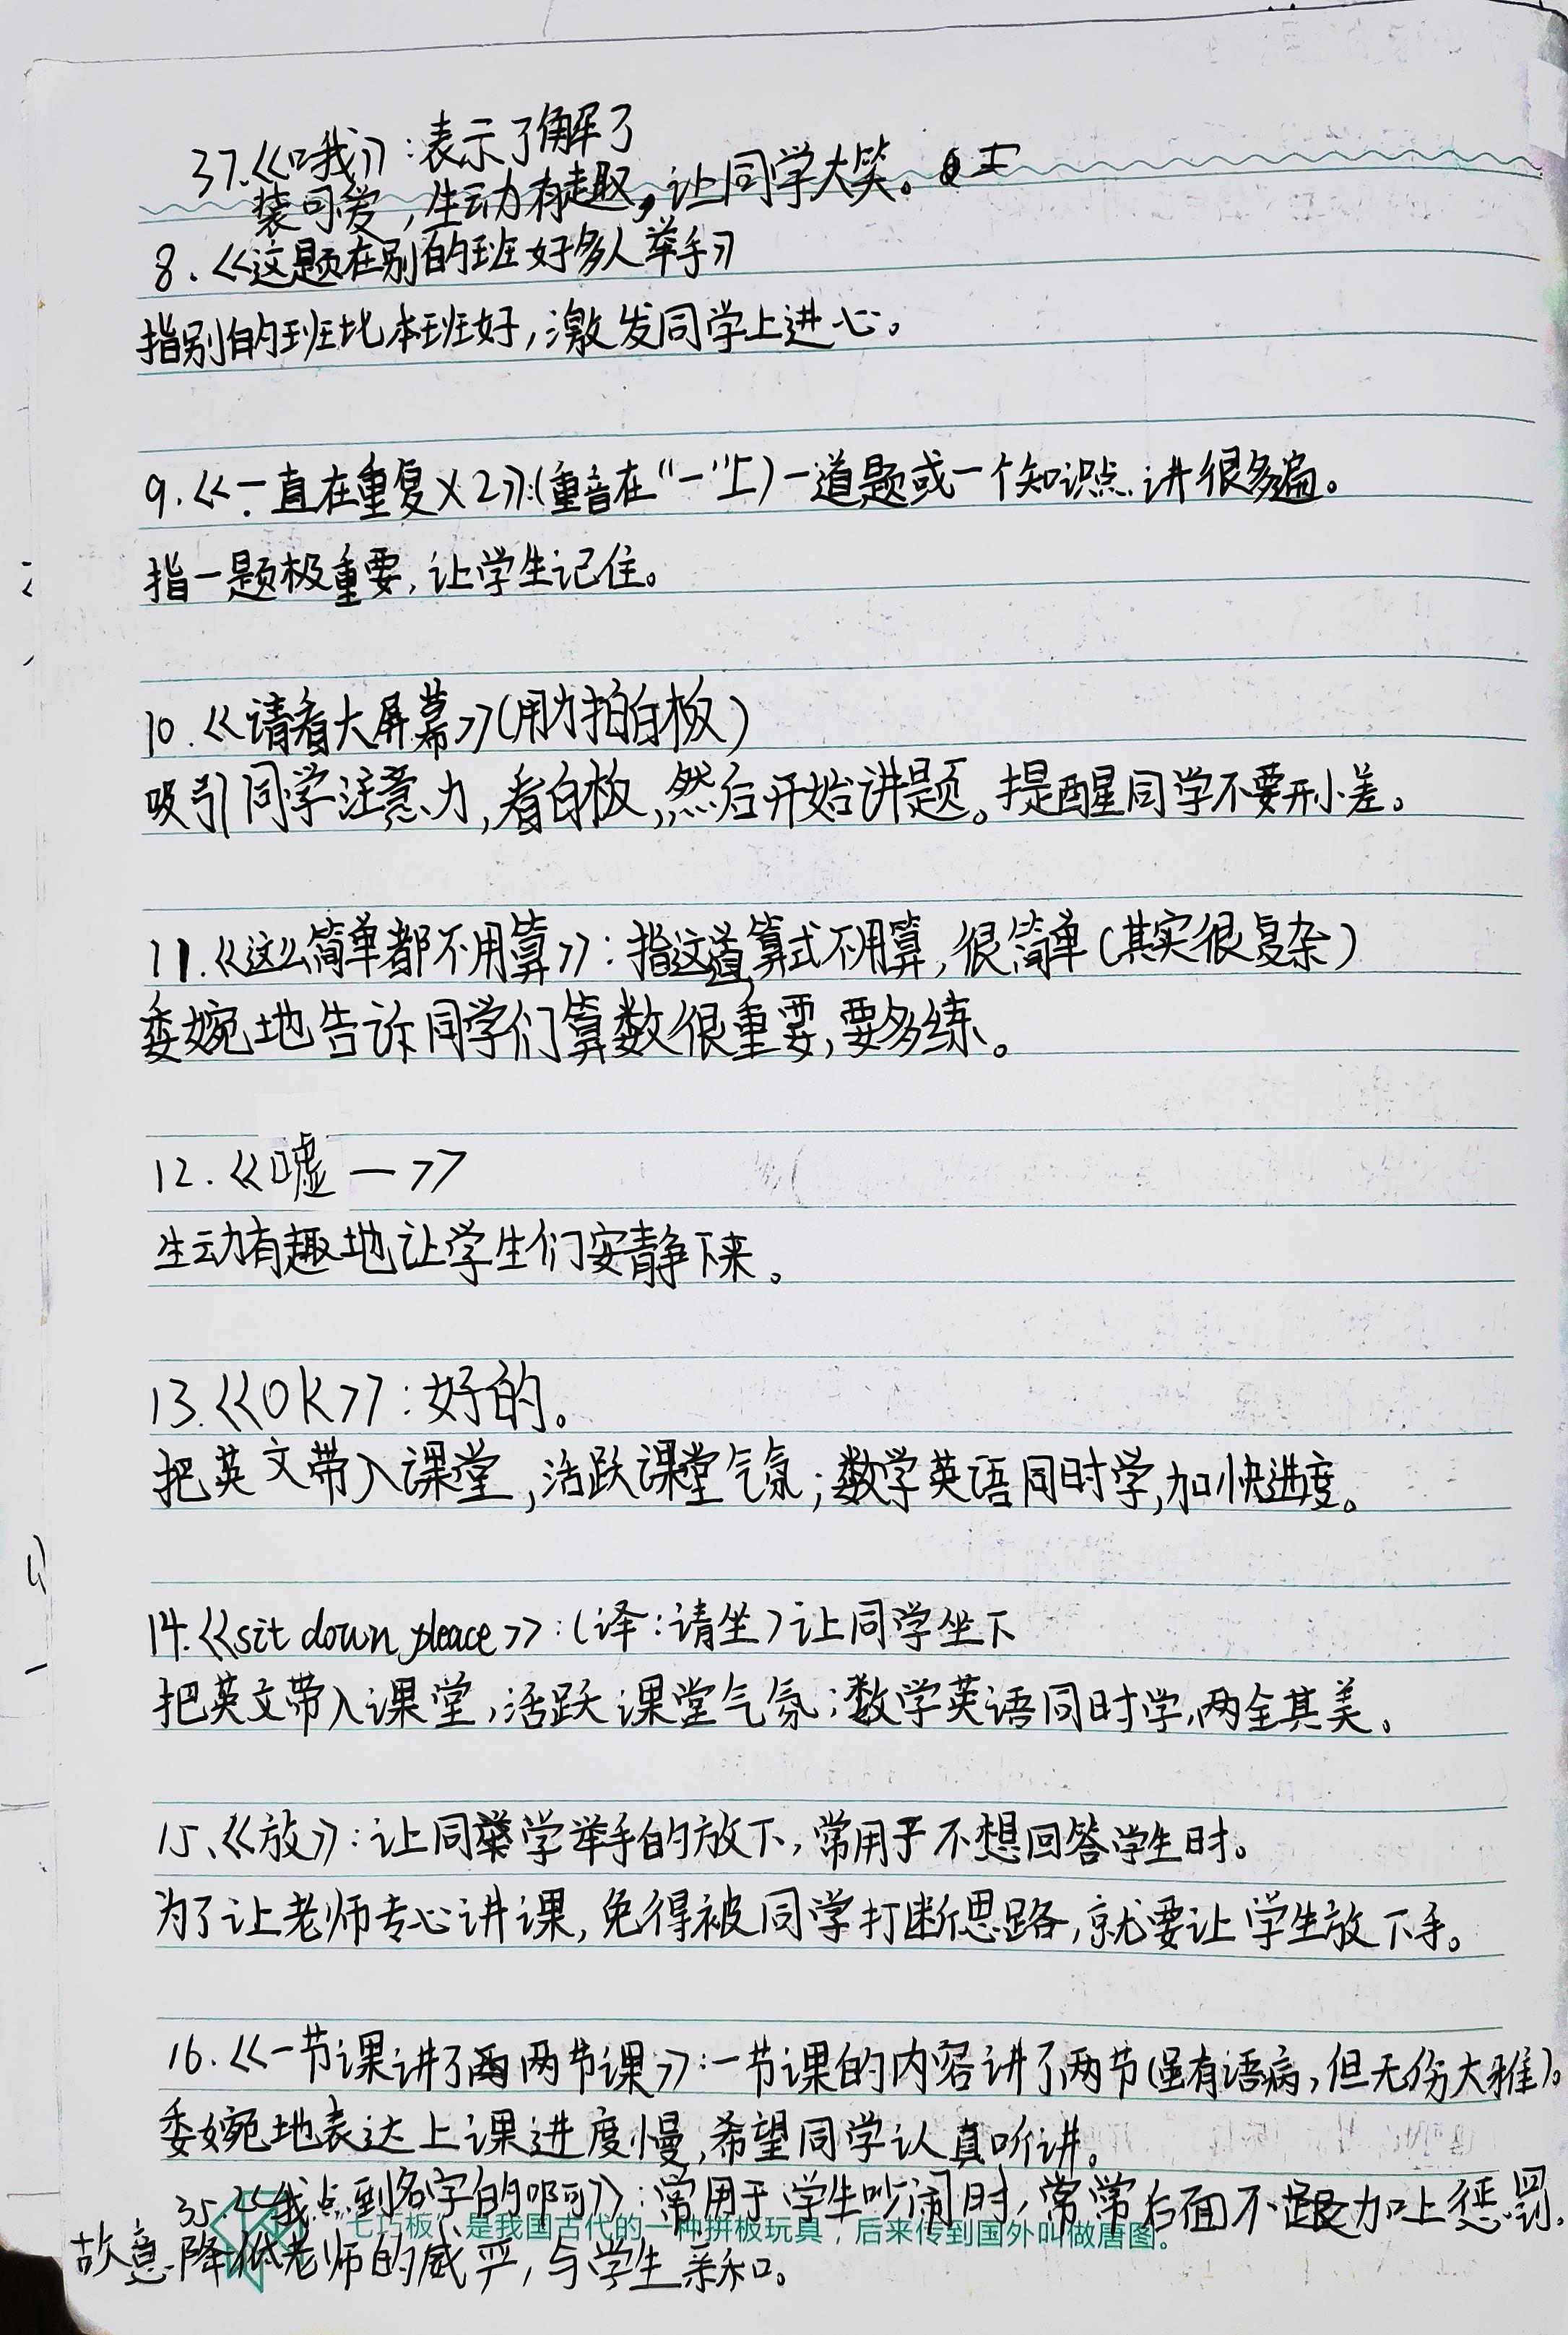 37.《哦》:表示了解了
装可爱,生动有趣,让同学大笑。
8.《这题在别的班好多人举手》
指别的班比本班好,激发同学上进心。
9.《一直在重复×2》:(重音在“一”上)一道题或一个知识点讲很多遍。
指一题极重要,让学生记住。
10.《请看大屏幕》(用力拍白板)
吸引同学注意力,看白板,然后开始讲题。提醒同学不要开小差。
11.《这么简单都不用算》:指这道算式不用算,很简单(其实很复杂)
委婉地告诉同学们算数很重要,要多练。
12.《嘘一》
生动有趣地让学生们安静下来。
13.《OK》:好的。
把英文带入课堂,活跃课堂气氛;数学英语同时学,加快进度。
14.《sit down pleace》:(译:请坐)让同学坐下
把英文带入课堂,活跃课堂气氛;数学英语同时学,两全其美。
15、《放》:让同学举手的放下,常用于不想回答学生时。
为了让老师专心讲课,免得被同学打断思路,就要让学生放下手。
16.《一节课讲了两节课》:一节课的内容讲了两节(虽有语病,但无伤大雅)。
委婉地表达上课进度慢,希望同学认真听讲。
35.《我点到名字的啊》:常用于学生吵闹时,常常后面不跟加上惩罚.
七巧板”是我国古代的一种拼板玩具,后来传到国外叫做唐图。
故意降低老师的威严,与学生亲和。